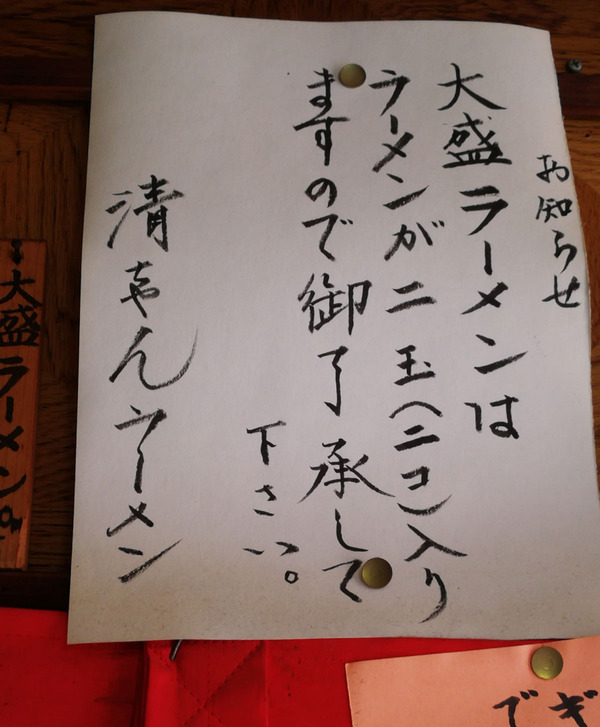 お知らせ
大盛ラーメンは
ラーメンが二玉(ニコ)入り
ますので御了承して
下さい。
清ちゃんラーメン
大盛ラーメン
でギ